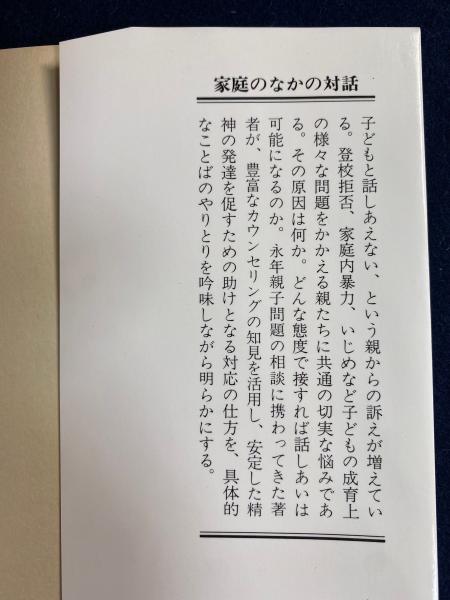 家庭のなかの対話
子どもと話しあえない、という親からの訴えが増えてい
る。登校拒否、家庭内暴力、いじめなど子どもの成育上
の様々な問題をかかえる親たちに共通の切実な悩みであ
る。その原因は何か。どんな態度で接すれば話しあいは
可能になるのか。永年親子問題の相談に携わってきた著
者が、豊富なカウンセリングの知見を活用し、安定した精
神の発達を促すための助けとなる対応の仕方を、具体的
なことばのやりとりを吟味しながら明らかにする。